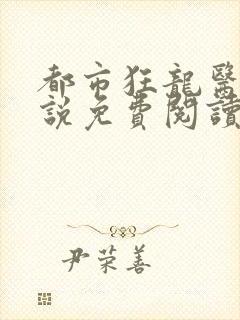 都市狂龍醫
說免費閱讀
尹荣善